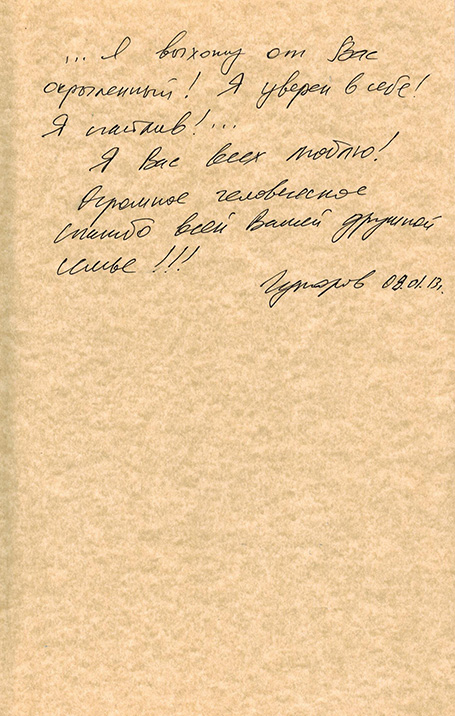 ... Я выхожу от Вас
окрыленный! Я уверен в себе!
Я счастлив!...
Я Вас всех люблю!
Огромное человеческое
спасибо всей Вашей дружной
семье!!!
09.01.13г.